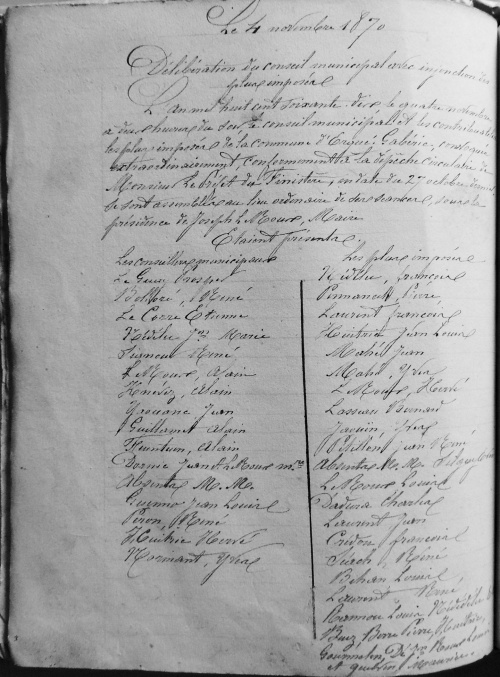 Le 4 novembre 1870
Délibération du conseil municipal avec injonction des
plus imposés
L'an mil huit cent soixante-dix le quatre novembre
à deux heures du soir, le conseil municipal et les contribuables
les plus imposés de la commune d'Ergué-Gabéric, convoqués
extraordinairement conformément à la dépêche circulaire de
Monsieur le Préfet du Finistère, en date du 27 octobre dernier
se sont assemblés au lieu ordinaire de ses séances, sous la
présidence de Joseph Le Roux, Maire
Etaient présents.
Les conseillers municipaux
Le Guay Prosper
Bolloré, René
Le Corre Etienne
Nédélec Jn Marie
René
Le Roux, Alain
Alain
Jean
Guillermet Alain
Feunteun, Alain
Jean & Le Roux m.re
Absents M. M.
Guenno Jean Louis
Péron, René
Huitric Hervé
Normant, Yves
Les plus imposés
Nédélec, François
Pennanech Pierre,
Laurent François
Huitric Jean Louis
Mahé Jean
Mahé, Yves
Le Roux, Hervé
Lasseau Bernard
Jaouin, Yves
Pétillon Jean René
Absents M. M.
Le Roux Louis
Charles
Laurent Jean
Credou François
René
Bihan Louis
Laurent René,
Louis Nédélec
Pierre,
Gourmelen, Le Roux
et